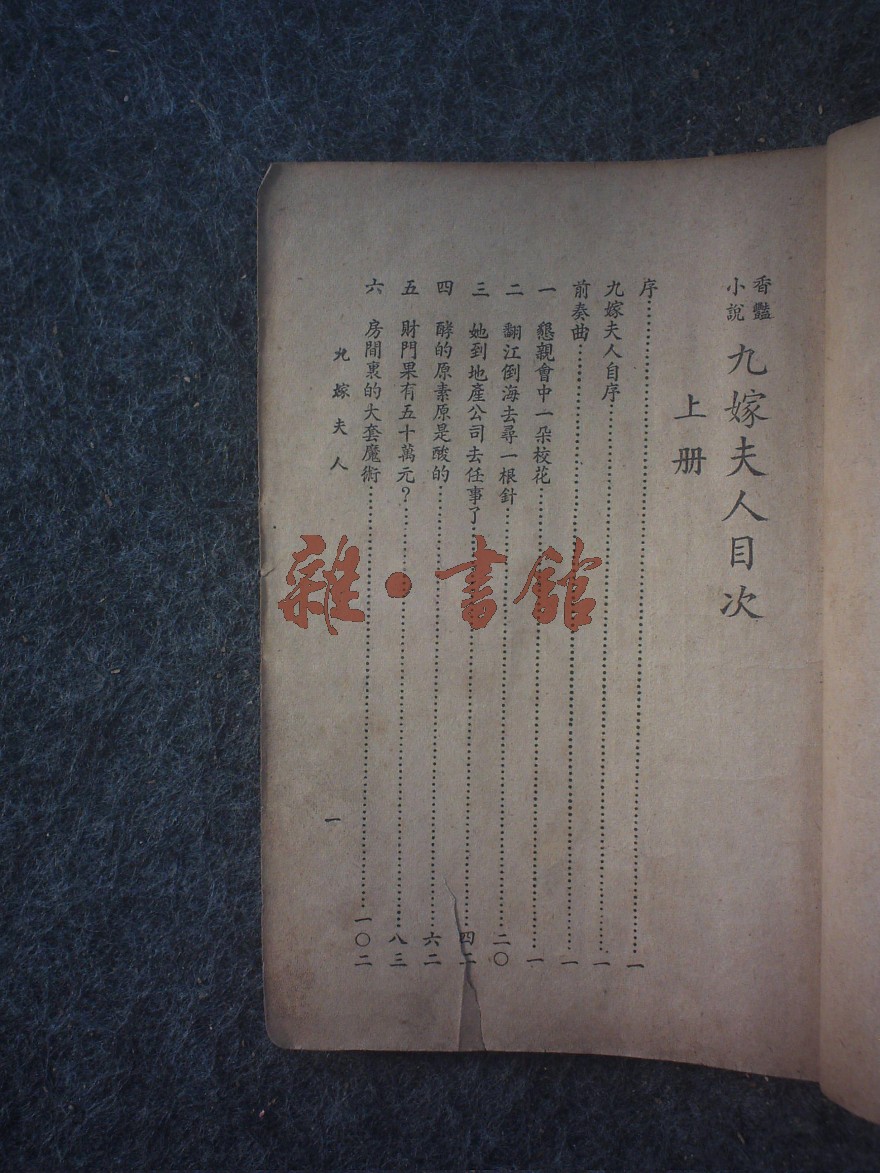 香豔
小說
九嫁夫人目次
上册
序……一
九嫁夫人自序……一
前奏曲……一
一 懇親會中一朵校花……一
二 翻江倒海去尋一根針……二〇
三 她到地產公司去任事了……四二
四 酵的原素原是酸的……六二
五 財門果有五十萬元？……八三
六 房間裏的大套魔術……一〇二
九嫁夫人
一
雜·書館